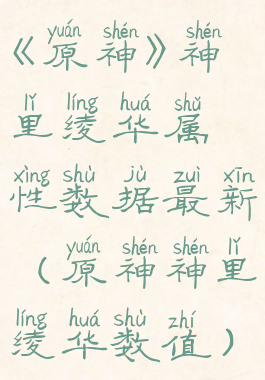 yuán shén shén
《原神》神
lǐ líng huá shǔ
里绫华属
xìng shù jù zuì xīn
性数据最新
yuán shén shén lǐ
(原神神里
líng huá shù zhí
绫华数值)